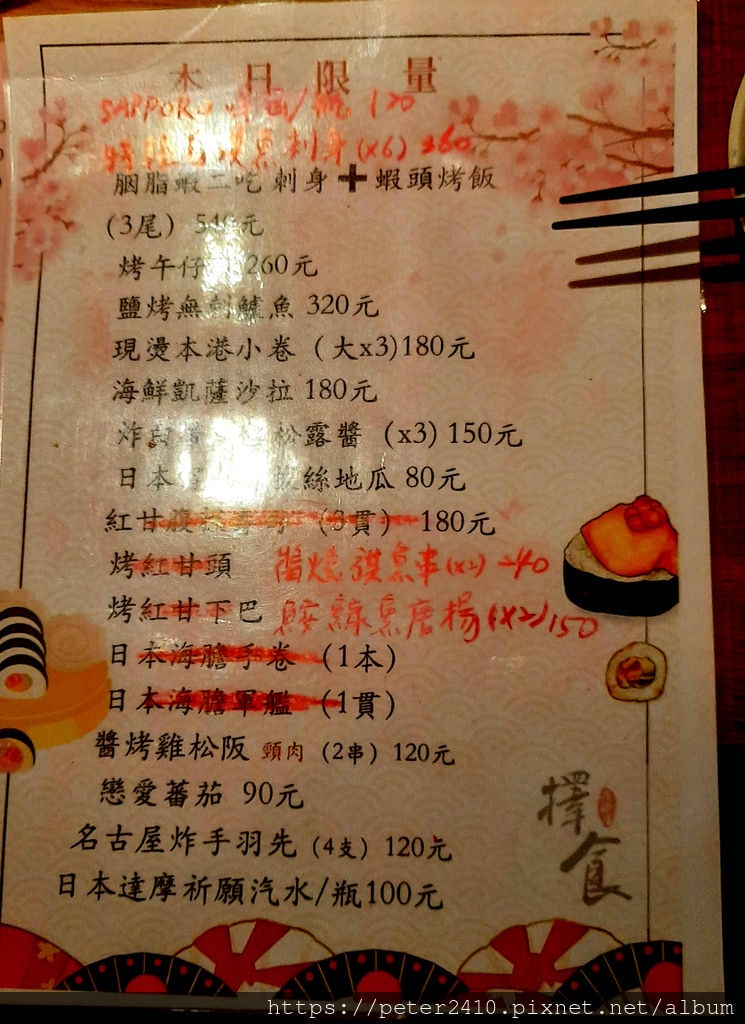 本日限量
SAPPORO 啤酒/瓶 120
刺身(x6) 360
胭脂蝦二吃 刺身➕蝦頭烤飯
(3尾) 540元
烤午仔 260元
鹽烤無刺鱸魚 320元
現燙本港小卷 (大x3)180元
海鮮凱薩沙拉 180元
炸白 松露醬 (x3) 150元
日本 拔絲地瓜 80元
紅甘腹 (3貫) 180元
烤紅甘頭 醬燒 串(x2) 240
烤紅甘下巴 唐揚(x2)150
日本海膽手卷 (1本)
日本海膽軍艦 (1貫)
醬烤雞松阪 頸肉 (2串) 120元
戀愛蕃茄 90元
名古屋炸手羽先 (4支) 120元
日本達摩祈願汽水/瓶100元
擇食
https://peter2410.pixnet.net/album